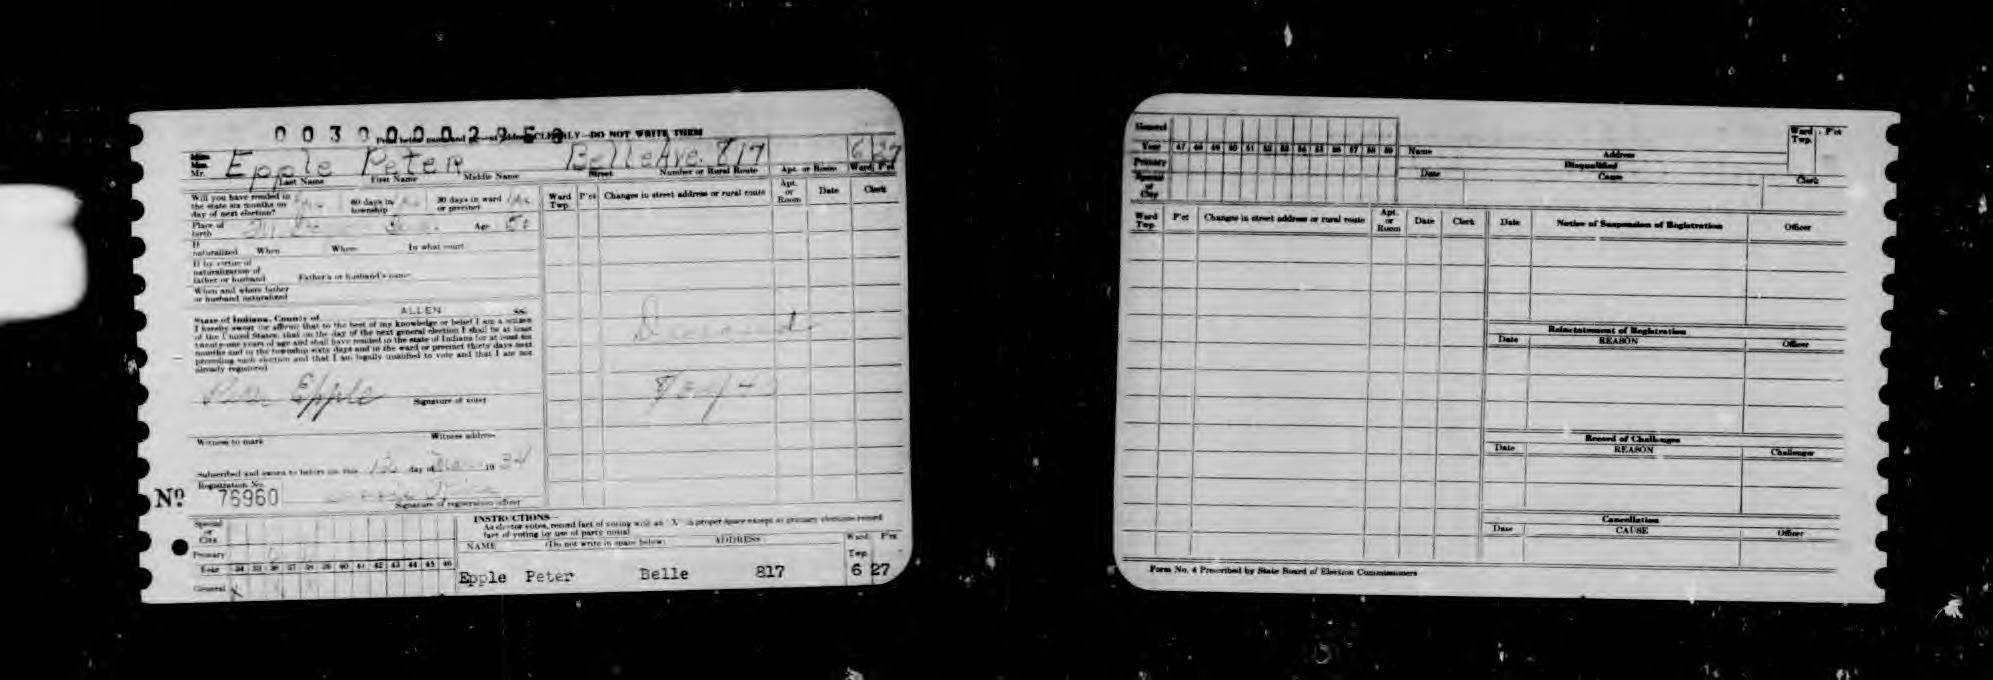 Print below name and street address CLEARLY—DO NOT WRITE THEM
Miss
Mrs.
Mr. Epple Peter Belle Ave. 817 6 27
Last Name First Name Middle Name Street Number or Rural Route Apt. or Room Ward P'ct
Will you have resided in the state six months on day of next election? 60 days in township 30 days in ward or precinct
Place of birth Age
If naturalized When Where In what court
If by virtue of naturalization of father or husband Father's or husband's name
When and where father or husband naturalized
State of Indiana, County of ALLEN SS.
I hereby swear (or affirm) that to the best of my knowledge or belief I am a citizen
of the United States, that on the day of the next general election I shall be at least
twenty-one years of age and shall have resided in the state of Indiana for at least six
months and in the township sixty days and in the ward or precinct thirty days next
preceding such election and that I am legally qualified to vote and that I am not
already registered
Peter Epple
Signature of voter
Witness to mark Witness address
Subscribed and sworn to before me this 12 day of 19 34
Registration No.
No 76960
Signature of registration officer
Ward Twp. P'ct Changes in street address or rural route Apt. or Room Date Clerk
Deceased
Special or City
Primary
Year 34 35 36 37 38 39 40 41 42 43 44 45 46
General X X X
INSTRUCTIONS—
As elector votes, record fact of voting with an "X" in proper space except in primary elections record
fact of voting by use of party initial
NAME (Do not write in space below) ADDRESS Ward Twp. P'ct
Epple Peter Belle 817 6 27
General
Year 47 48 49 50 51 52 53 54 55 56 57 58 59
Primary
Special or City
Name Address Ward Twp. P'ct
Disqualified
Date Cause Clerk
Ward Twp. P'ct Changes in street address or rural route Apt. or Room Date Clerk
Date Notice of Suspension of Registration Officer
Reinstatement of Registration
Date REASON Officer
Record of Challenges
Date REASON Challenger
Cancellation
Date CAUSE Officer
Form No. 4 Prescribed by State Board of Election Commissioners